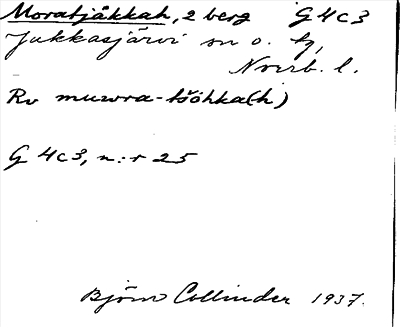 Moratjåkkah, 2 berg G4c3
Jukkasjärvi sn o. tg,
Norrb. l.
Rv muwra-tšöhka(h)
G 4c3, n:r 25
Björn Collinder 1937.